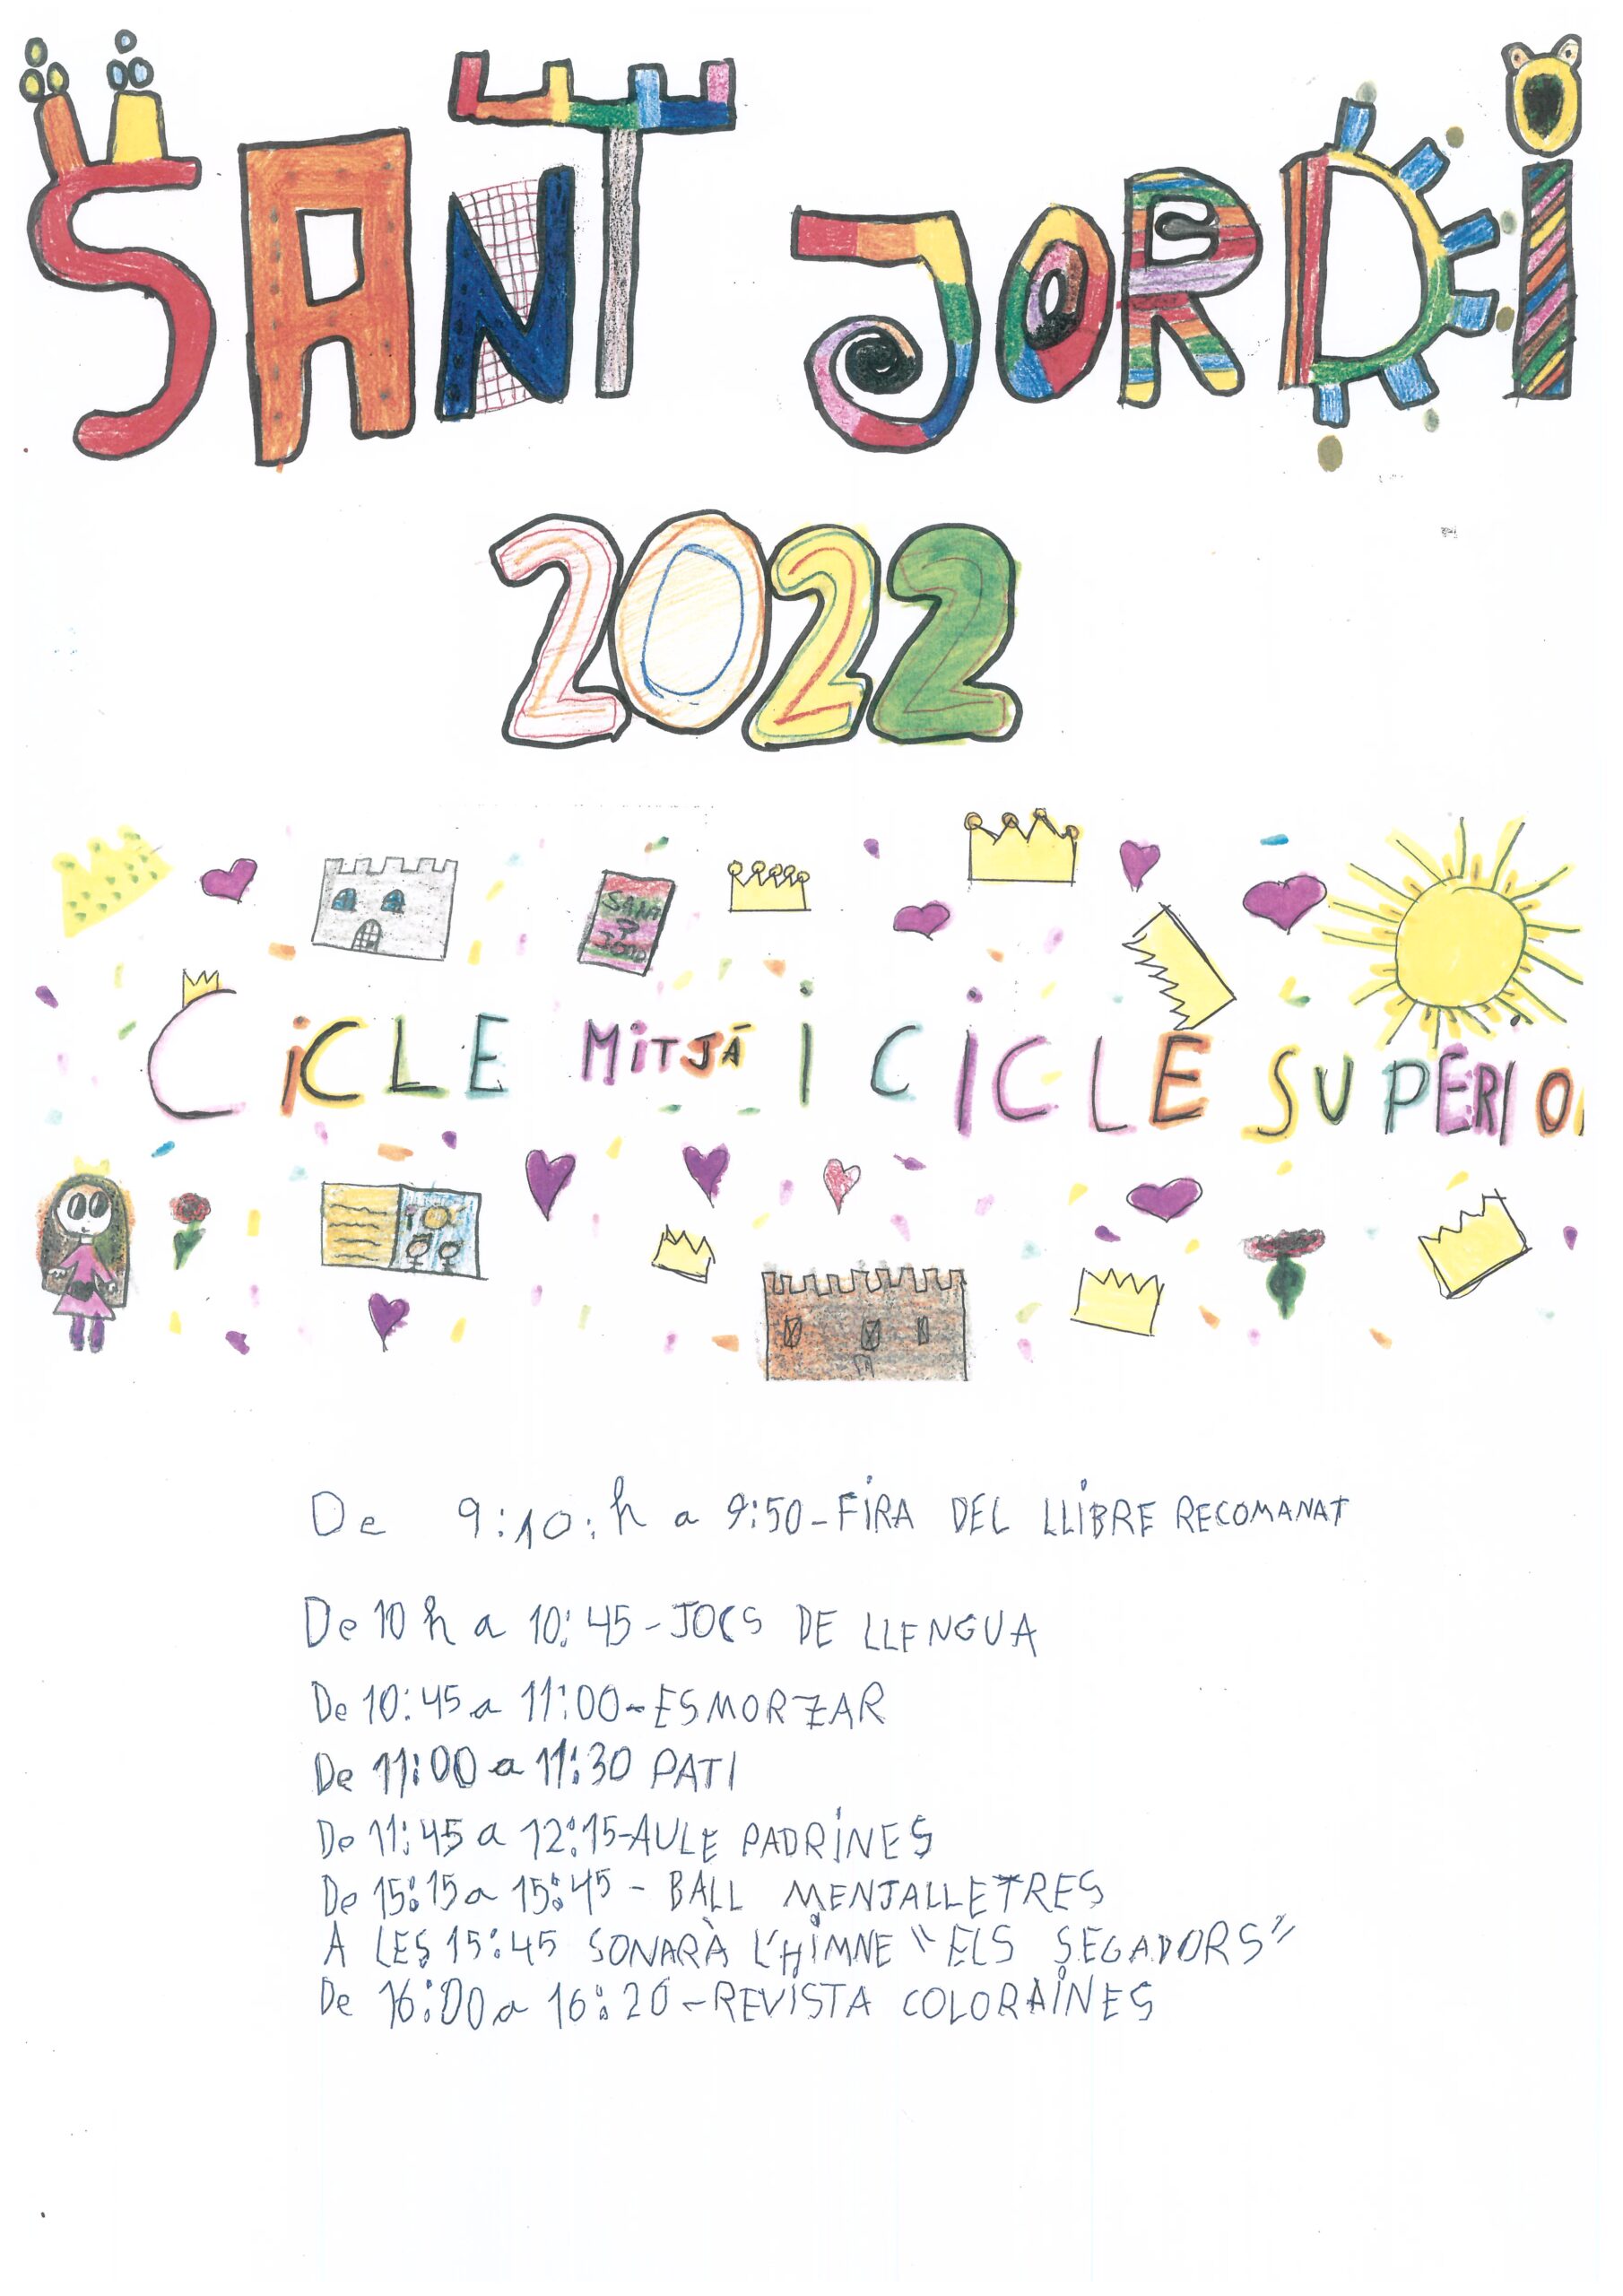 SANT JORDI
2022
CiCLE MiTJÁ I CICLE SUPERIO
De 9:10:h a 9:50-FIRA DEL LLIBRE RECOMANAT
De 10 h a 10:45-JOCS DE LLENGUA
De 10:45 a 11:00-ESMORZAR
De 11:00 a 11:30 PATI
De 11:45 a 12:15-AULE PADRINES
De 15:15 a 15:45 - BALL MENJALLETRES
A LES 15:45 SONARÀ L'HIMNE "ELS SEGADORS"
De 16:00 a 16:20-REVISTA COLORAINES